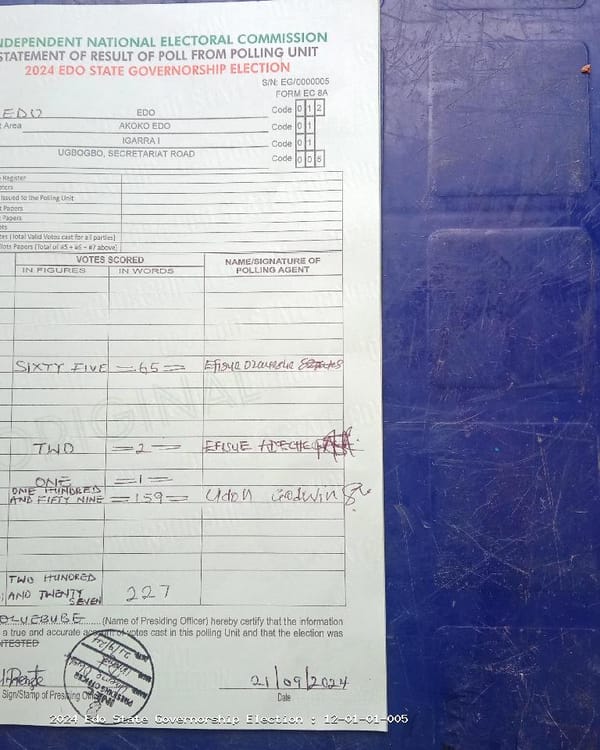 NDEPENDENT NATIONAL ELECTORAL COMMISSION
STATEMENT OF RESULT OF POLL FROM POLLING UNIT
2024 EDO STATE GOVERNORSHIP ELECTION
S/N: EG/0000005
FORM EC 8A
EDO EDO Code 0 1 2
t Area AKOKO EDO Code 0 1
IGARRA I Code 0 1
UGBOGBO, SECRETARIAT ROAD Code 0 0 5
Register
ters
Issued to the Polling Unit
t Papers
Papers
ts
tes (Total Valid Votes cast for all parties)
llots Papers (Total of #5 + #6 - #7 above)
VOTES SCORED NAME/SIGNATURE OF POLLING AGENT
IN FIGURES IN WORDS
SIXTY FIVE =65=
TWO =2= EFISUE
ONE =1=
ONE HUNDRED
AND FIFTY NINE =159= Udoh Godwin
TWO HUNDRED
AND TWENTY SEVEN 227
(Name of Presiding Officer) hereby certify that the information
a true and accurate account of votes cast in this polling Unit and that the election was
NTESTED
21/09/2024
Sign/Stamp of Presiding Officer Date
ORIGINAL
2024 Edo State Governorship Election : 12-01-01-005